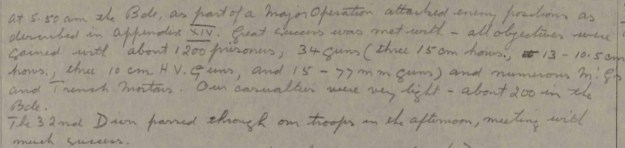 At 5.50 am the Bde, as part of a Major Operation attacked enemy positions as
described in appendix XIV. Great success was met with - all objectives were
gained with about 1200 prisoners, 34 guns (three 15 cm hows, 13 - 10.5 cm
hows, three 10 cm H.V. Guns, and 15 - 77 mm guns) and numerous M.Gs
and Trench Mortars. Our casualties were very light - about 200 in the
Bde.
The 32nd Divn passed through our troops in the afternoon, meeting with
much success.